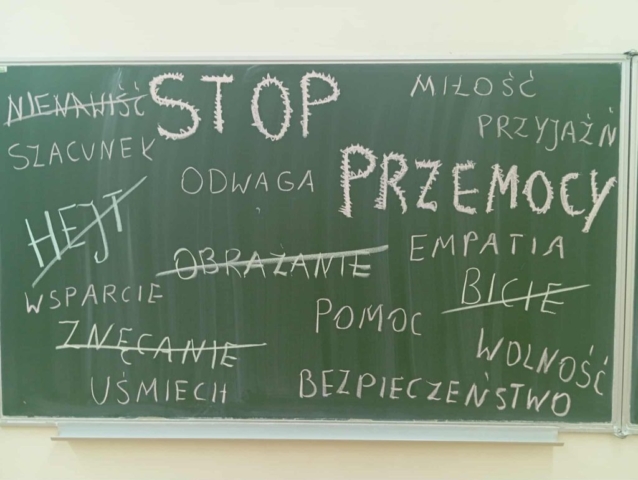 NIENAWIŚĆ
STOP
MIŁOŚĆ
PRZYJAŹŃ
SZACUNEK
ODWAGA
PRZEMOCY
HEJT
OBRAŻANIE
EMPATIA
WSPARCIE
BICIE
POMOC
ZNĘCANIE
WOLNOŚĆ
UŚMIECH
BEZPIECZEŃSTWO